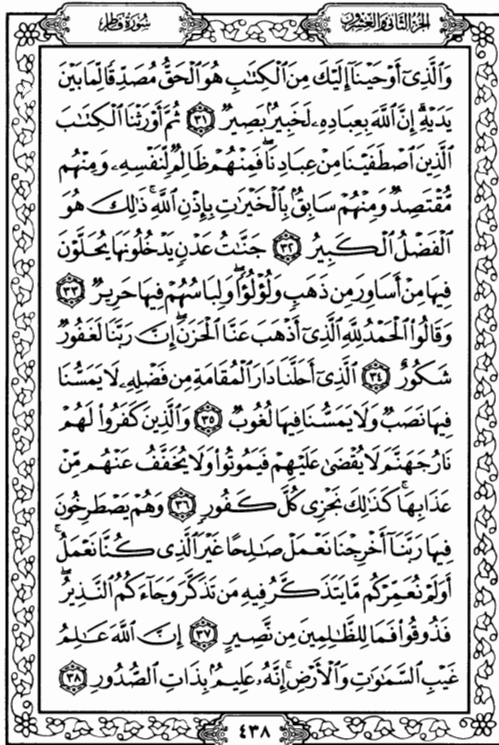 الجزء الثاني والعشرون
سورة فاطر
وَالَّذِىٓ أَوْحَيْنَآ إِلَيْكَ مِنَ الْكِتَٰبِ هُوَ الْحَقُّ مُصَدِّقًا لِّمَا بَيْنَ
يَدَيْهِ ۗ إِنَّ اللَّهَ بِعِبَادِهِۦ لَخَبِيرٌۢ بَصِيرٌ ٣١ ثُمَّ أَوْرَثْنَا الْكِتَٰبَ
الَّذِينَ اصْطَفَيْنَا مِنْ عِبَادِنَا ۖ فَمِنْهُمْ ظَالِمٌ لِّنَفْسِهِۦ وَمِنْهُم
مُّقْتَصِدٌ وَمِنْهُمْ سَابِقٌۢ بِالْخَيْرَٰتِ بِإِذْنِ اللَّهِ ۚ ذَٰلِكَ هُوَ
الْفَضْلُ الْكَبِيرُ ٣٢ جَنَّٰتُ عَدْنٍ يَدْخُلُونَهَا يُحَلَّوْنَ
فِيهَا مِنْ أَسَاوِرَ مِن ذَهَبٍ وَلُؤْلُؤًا ۖ وَلِبَاسُهُمْ فِيهَا حَرِيرٌ ٣٣
وَقَالُوا الْحَمْدُ لِلَّهِ الَّذِىٓ أَذْهَبَ عَنَّا الْحَزَنَ ۖ إِنَّ رَبَّنَا لَغَفُورٌ
شَكُورٌ ٣٤ الَّذِىٓ أَحَلَّنَا دَارَ الْمُقَامَةِ مِن فَضْلِهِۦ لَا يَمَسُّنَا
فِيهَا نَصَبٌ وَلَا يَمَسُّنَا فِيهَا لُغُوبٌ ٣٥ وَالَّذِينَ كَفَرُوا لَهُمْ
نَارُ جَهَنَّمَ لَا يُقْضَىٰ عَلَيْهِمْ فَيَمُوتُوا وَلَا يُخَفَّفُ عَنْهُم مِّنْ
عَذَابِهَا ۚ كَذَٰلِكَ نَجْزِى كُلَّ كَفُورٍ ٣٦ وَهُمْ يَصْطَرِخُونَ
فِيهَا رَبَّنَآ أَخْرِجْنَا نَعْمَلْ صَٰلِحًا غَيْرَ الَّذِى كُنَّا نَعْمَلُ ۚ
أَوَلَمْ نُعَمِّرْكُم مَّا يَتَذَكَّرُ فِيهِ مَن تَذَكَّرَ وَجَآءَكُمُ النَّذِيرُ ۖ
فَذُوقُوا فَمَا لِلظَّٰلِمِينَ مِن نَّصِيرٍ ٣٧ إِنَّ اللَّهَ عَٰلِمُ
غَيْبِ السَّمَٰوَٰتِ وَالْأَرْضِ ۚ إِنَّهُۥ عَلِيمٌۢ بِذَاتِ الصُّدُورِ ٣٨
٤٣٨